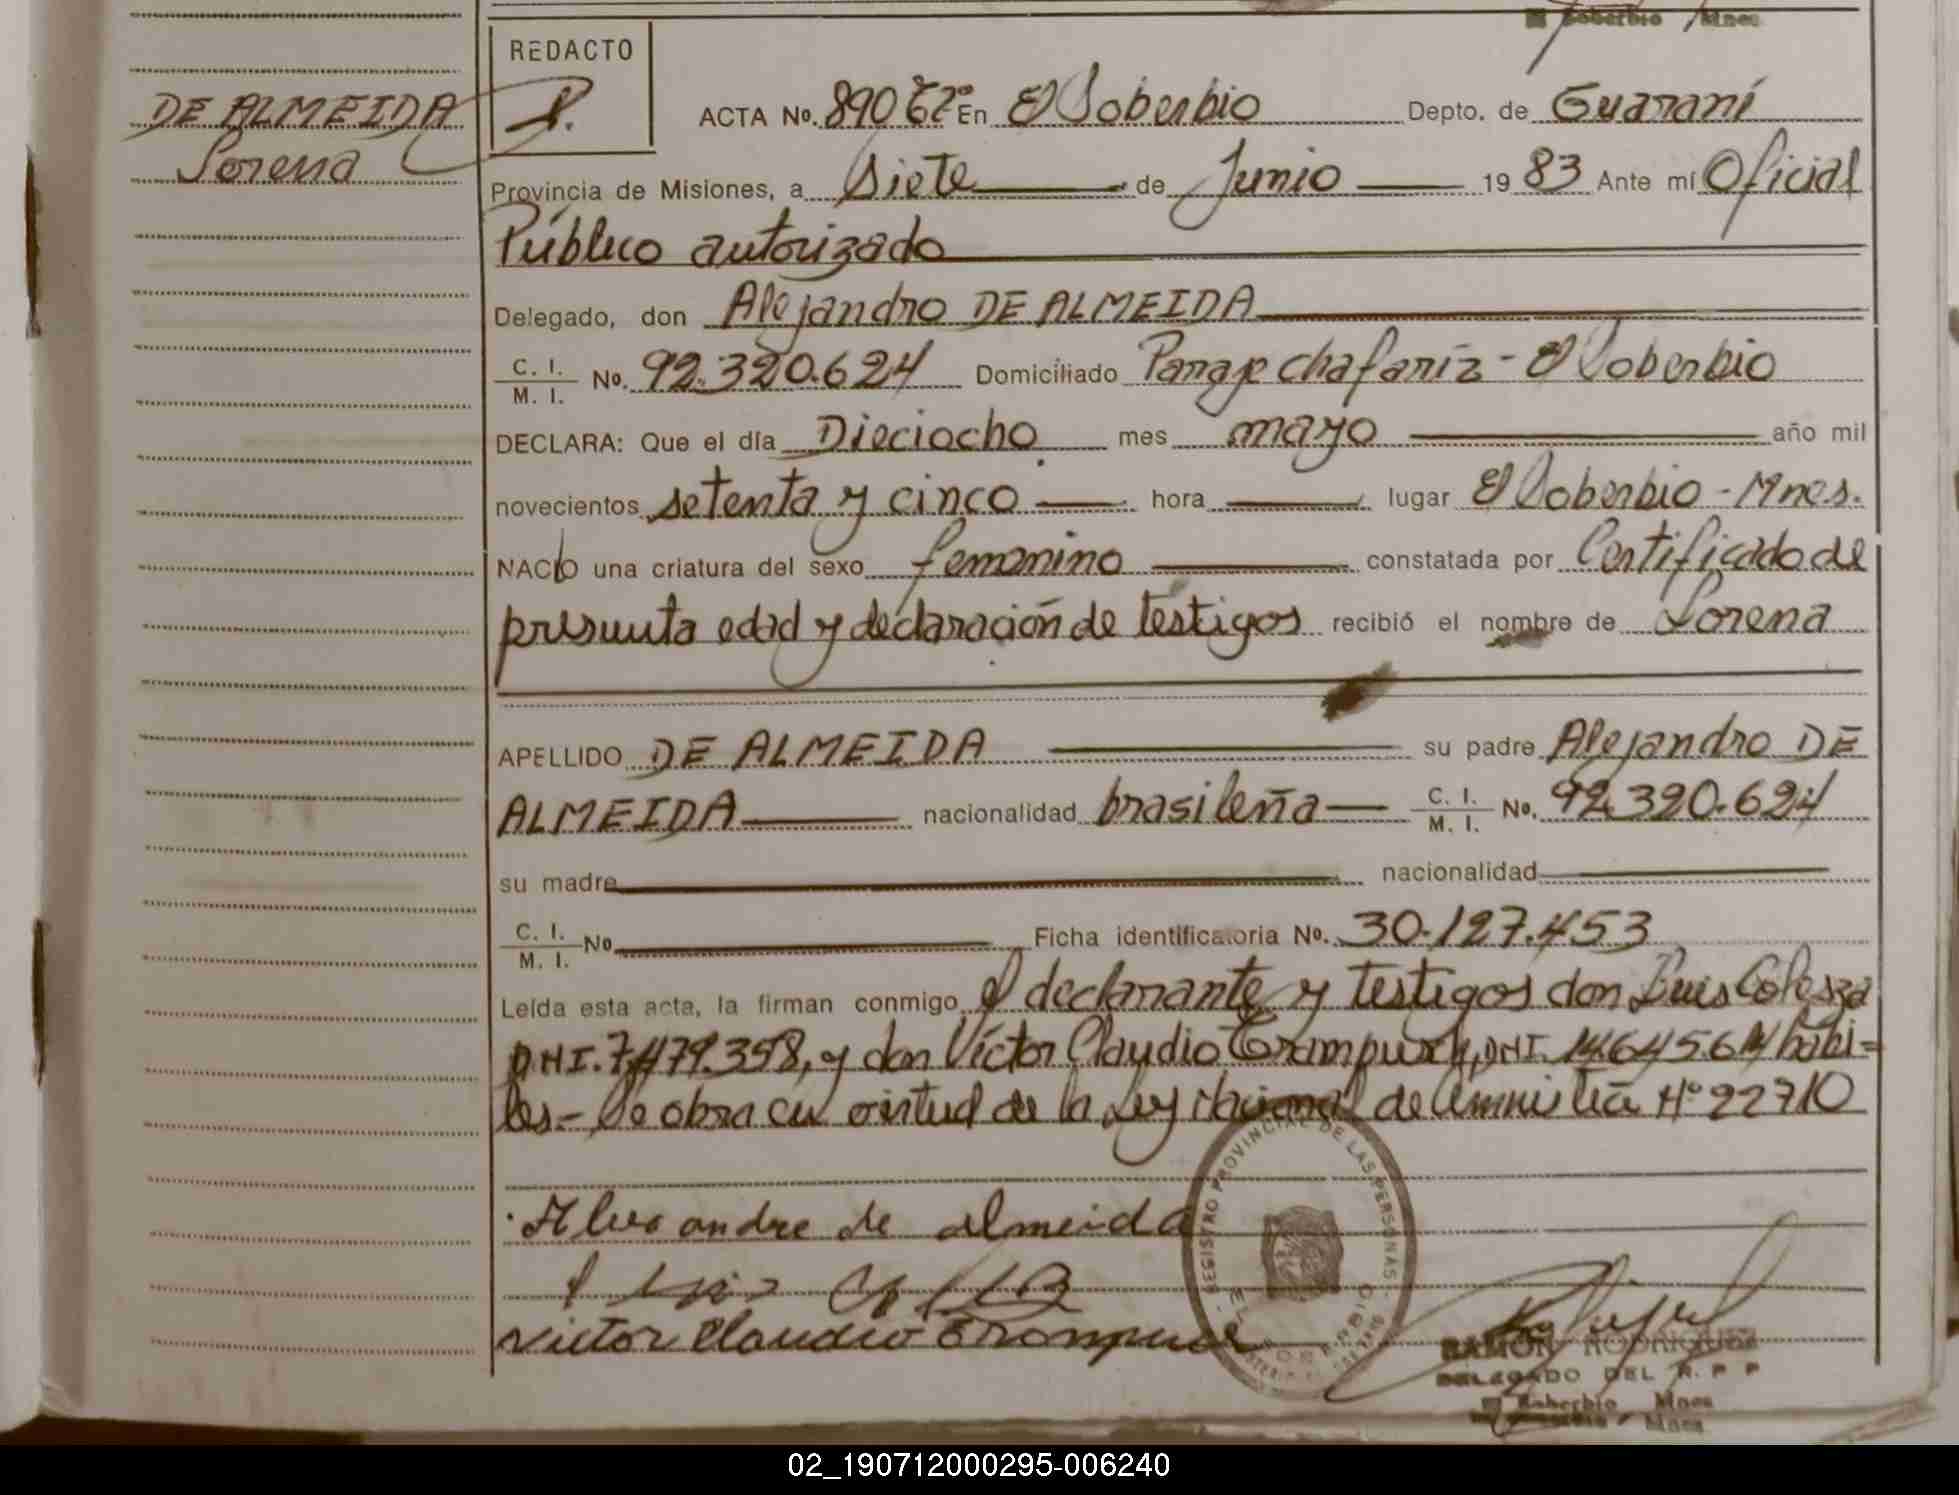 Soberbio Mnes
REDACTO
DE ALMEIDA
Lorena
ACTA No. 890 Tº En El Soberbio Depto. de Guaraní
Provincia de Misiones, a Siete de Junio 1983 Ante mí Oficial
Público autorizado
Delegado, don Alejandro DE ALMEIDA
C. I. / M. I. No. 92.320.624 Domiciliado Paraje chafariz - El Soberbio
DECLARA: Que el día Dieciocho mes mayo año mil
novecientos setenta y cinco hora lugar El Soberbio - Mnes.
NACIó una criatura del sexo femenino constatada por Certificado de
presunta edad y declaración de testigos recibió el nombre de Lorena
APELLIDO DE ALMEIDA su padre Alejandro DE
ALMEIDA nacionalidad brasileña C. I. / M. I. No. 92.320.624
su madre nacionalidad
C. I. / M. I. No Ficha identificatoria No. 30.127.453
Leída esta acta, la firman conmigo el declarante y testigos don Luis
DNI. 7.479.358, y don Víctor Claudio DNI. 14.645.614 habi=
les - Se obra en virtud de la Ley Nacional de Amnistía Nº 22710
de almeida
Victor Claudio
REGISTRO PROVINCIAL DE LAS PERSONAS
EL SOBERBIO
RAMON RODRIGUEZ
DELEGADO DEL R. P P
Soberbio Mnes
Mnes
02_190712000295-006240